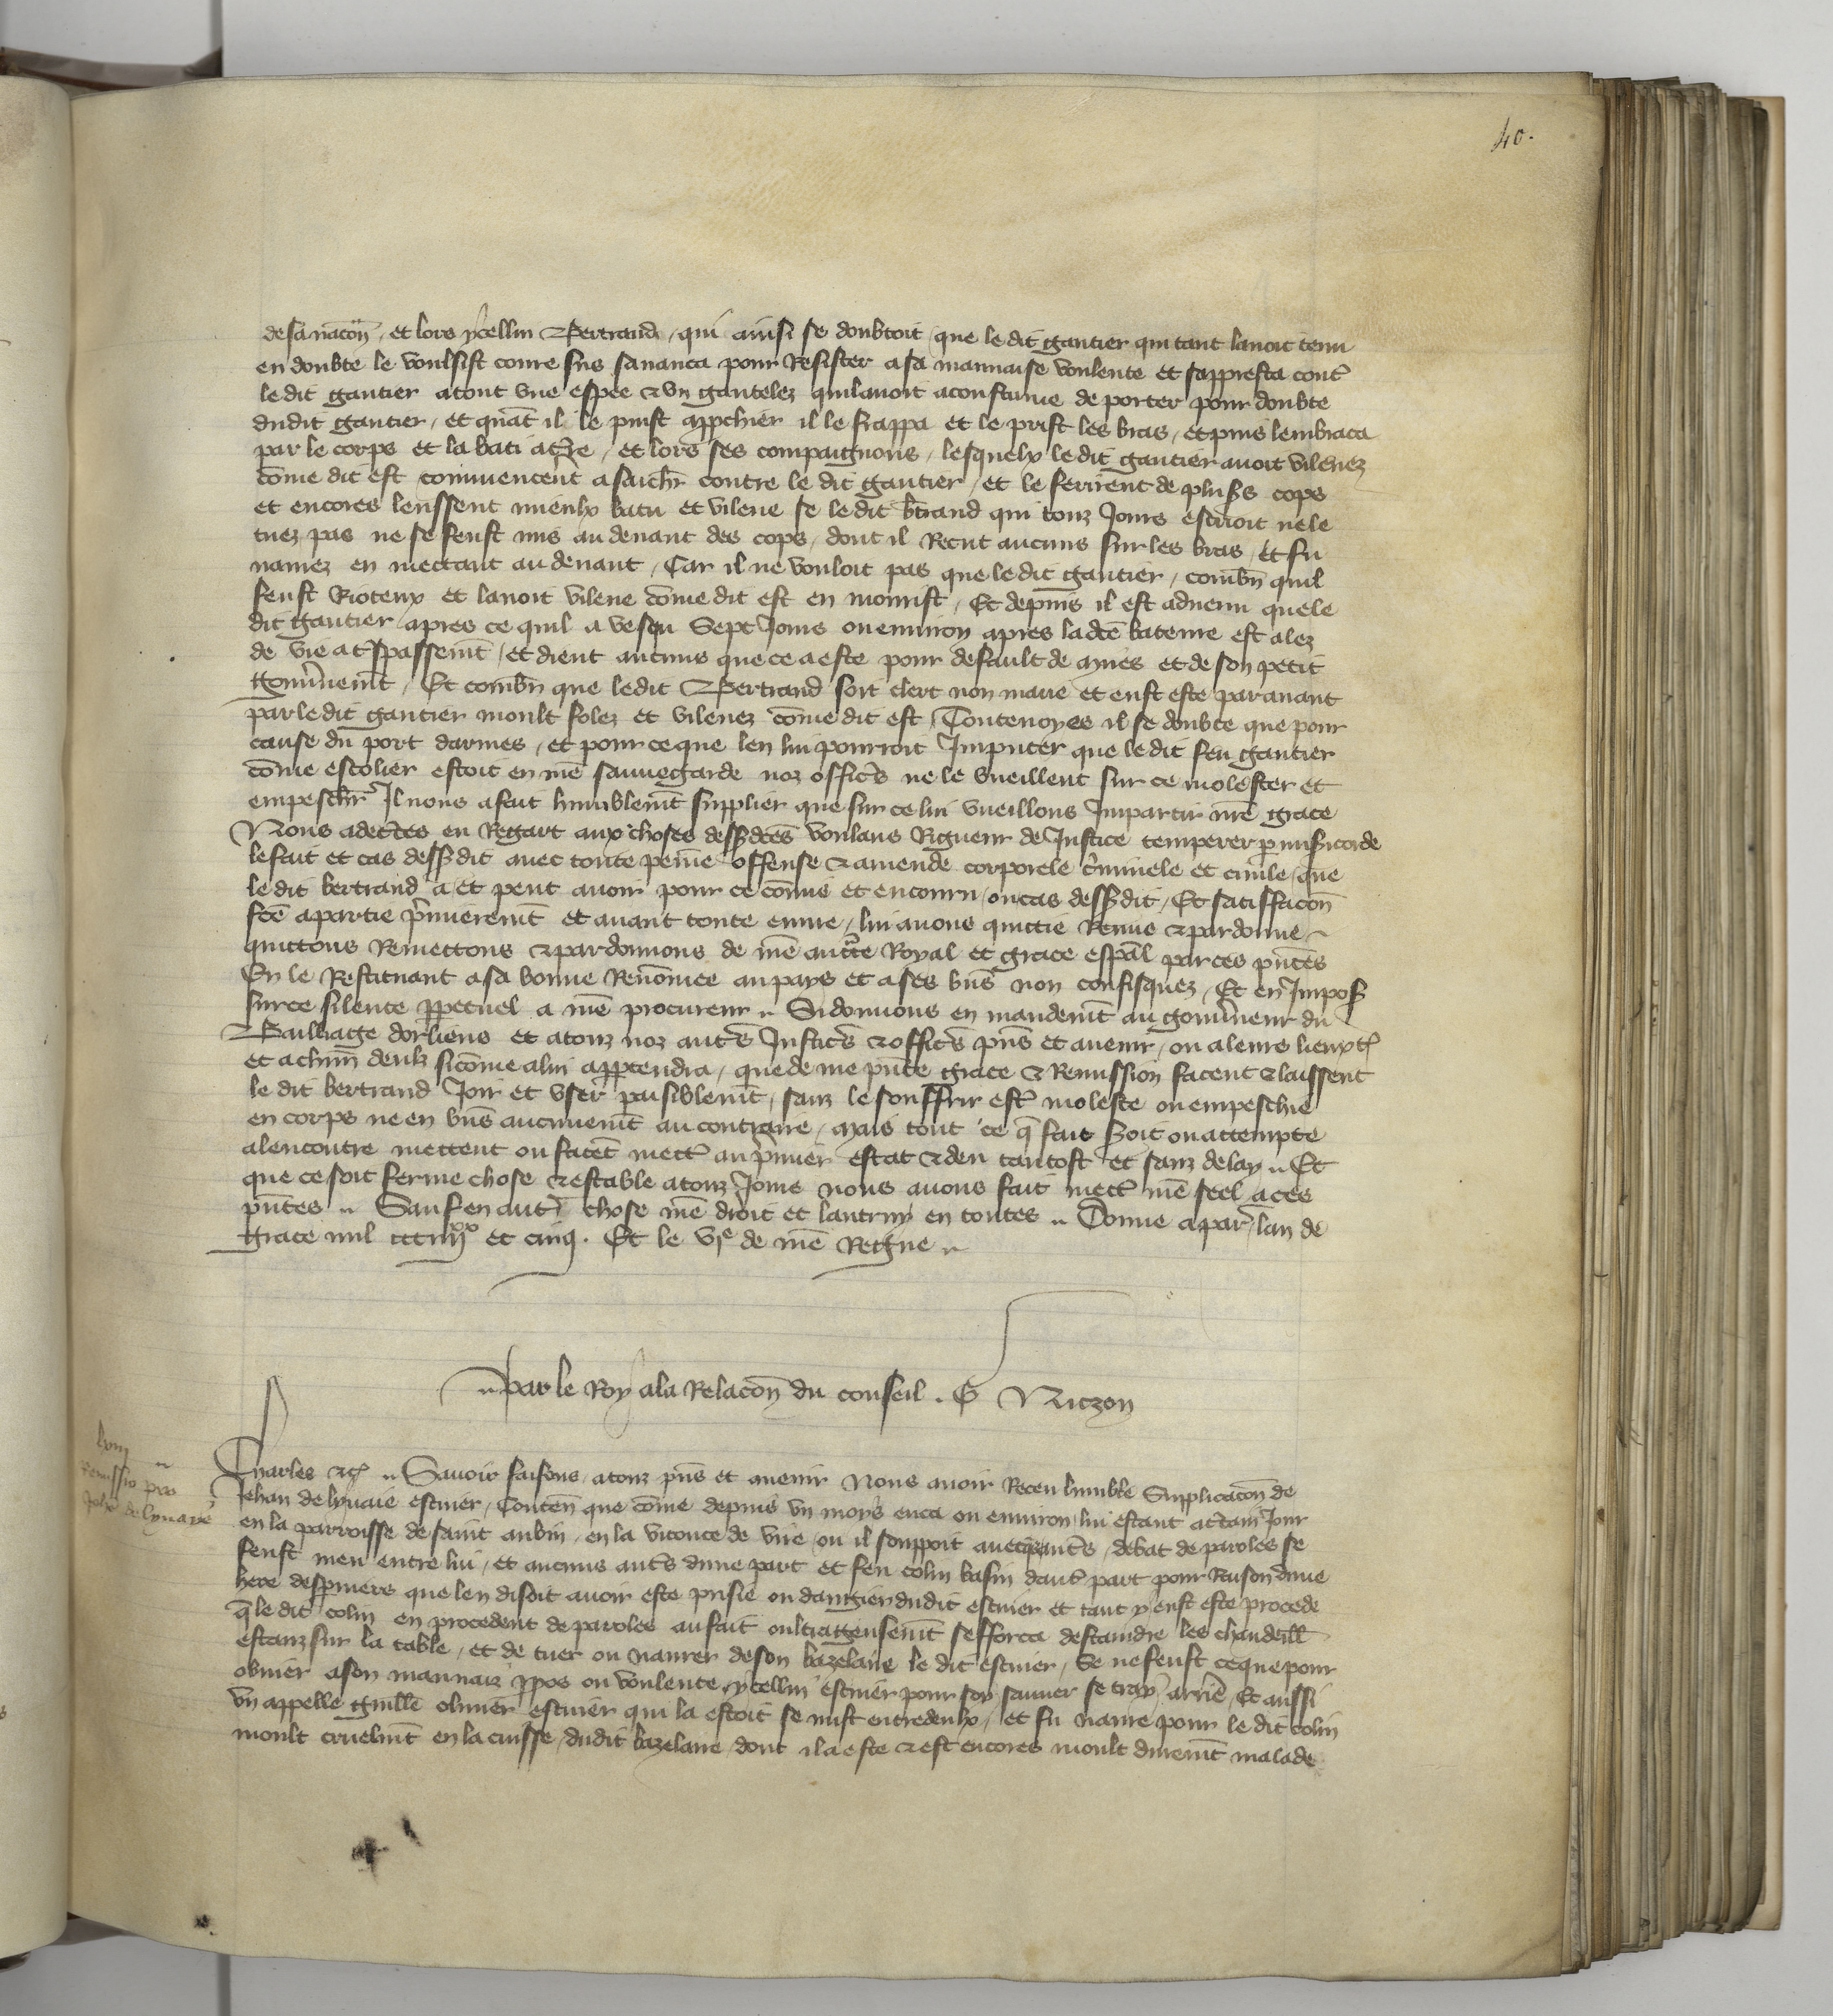 40.
de sa nacōn, et lors ycellui Bertrand, qui ainsi se doubtoit que le dit gautier qui tant lavoit tenu
en doubte le voulsist courre sus savanca pour Resister a sa mauvaise voulente et sappresta contr̄
le dit gautier atout une espee & un gantelez quil avoit acoustume de porter pour doubte
dudit gautier, et quāt il le puist app̄chier il le frappa et le prist les bras, et puis lembraca
par le corps et labati at̄re, et lors ses compaignons, lesquelx le dit gautier avoit vilenez
cōme dit est commencēnt a sachr̄ contre le dit gautier, et le ferirent de plus̄s cops
et encores leussent mieulx batu et vilene se le dit b̄trand qui touz Jours escrioit ne le
tuez pas ne se feust mis au devant des cops, dont il Recut aucuns sur les bras, et fu
navrez en mectant au devant, Car il ne vouloit pas que le dit gautier, combn̄ quil
feust Rioteux et lavoit vilene cōme dit est en mourust, Et depuis il est advenu que le
dit gautier apres ce quil a vesqu Sept Jours ou environ apres la dc̄e bateure est alez
de vie at̄spassemn̄t, et dient aucuns que ce a este pour default de mires et de son petit
gouv̄nemn̄t, Et combn̄ que le dit Bertrand soit clerc non marie et eust este par avant
par le dit gautier moult folez et vilenez cōme dit est, Toutevoyes il se doubte que pour
cause du port darmes, et pour ce que len lui pourroit Imputer que le dit feu gautier
cōme escolier estoit en nr̄e sauvegarde noz offic̄rs ne le vueillent sur ce molester et
empeschr̄ Il nous a fait humblemn̄t supplier que sur ce lui vueillons Impartir nr̄e grace
Nous adec̄tes en Regart aux choses dess̄dc̄es voulans Rigueur de Justice temperer p̄ mis̄icorde
le fait et cas dess̄dit avec toute peine offense & amende corporele c̄minele et civile, que
le dit bertrand a et peut avoir pour ce cōmis et encouru, ou cas dess̄dit, Et satisfacōn
fc̄e a partie p̄mieremn̄t et avant toute euvre, lui avons quictie Remis & pardonne
quictons Remettons & pardonnons de nr̄e auct̄e Royal et grace esp̄al par ces pn̄tes
En le Restituant a sa bonne Renōmee au pays et a ses bn̄s non confisquez, Et en Impos̄
sur ce silence pp̄etuel a nr̄e procureur. Si donnons en mandemn̄t au gouv̄neur du
Bailliage dorliens et a touz noz autr̄s Justic̄s & offic̄s pn̄s et avenir, ou a leurs lieuxtē
et a chūn deulz si cōme a lui appartendra, que de nr̄e pn̄te grace & Remission facent & laissent
le dit bertrand Joir et user paisiblemn̄t, sanz le souffrir estr̄ moleste ou empeschie
en corps ne en bn̄s aucunemn̄t au contraire, Mais tout ce q̄ fait soit ou attempte
a lencontre mettent ou facēt mectr̄ au p̄mier estat & deu tantost et sanz delay. Et
que ce soit ferme chose & estable a touz Jours nous avons fait mectr̄ nr̄e seel a ces
pn̄tes. Sauf en autr̄ chose nr̄e droit et lautruy en toutes. Donne a par̄, lan de
grace mil ccc iiiixx et cinq. Et le vje de nr̄e Regne
par le Roy a la Relacōn du conseil. G Niczon
lviij
Remissio pro
Joh̄e de lynaye
Charles &c̄. Savoir faisons, a touz pn̄s et avenir Nous avoir Receu humble Supplicacōn de
Jehan de lynaie escuier, Conten̄ que cōme depuis un moys enca ou environ, lui estant ac̄tain Jour
en la parroisse de saint aubin, en la viconte de vire, ou il souppoit avecqs autr̄s, debat de paroles se
feust meu entre lui, et aucuns autr̄s dune part et feu colin basin dautr̄ part pour Raison dune
here despiners que len disoit avoir este prise ou dangier dudit escuier et tant y eust este procede
q̄ le dit colin en procedent de paroles au fait oultrageusemn̄t sefforca destaindre les chandeill̄
estanz sur la table, et de tuer ou navrer de son bazelaire le dit escuier, Se ne feust ce que pour
obvier a son mauvaiz p̄pos ou voulente, ycellui escuier pour soy sauver se tray arrier̄, Et aussi
un appelle guill̄e olivier escuier qui la estoit se mist entredeulx, et fu navre pour le dit colin
moult cruelmn̄t en la cuisse, dudit bazelaire, dont il a este & est encores moult duremn̄t malade